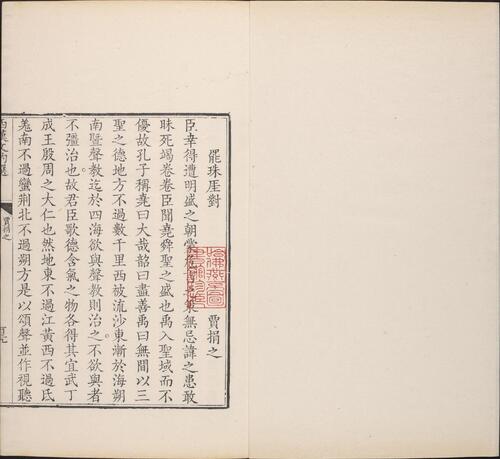 罷珠厓對
賈捐之
臣幸得遭明盛之朝蒙危言之策無忌諱之患敢
昧死竭卷卷臣聞堯舜聖之盛也禹入聖域而不
優故孔子稱堯曰大哉韶曰盡善禹曰無間以三
聖之德地方不過數千里西被流沙東漸於海朔
南暨聲教迄於四海欲與聲教則治之不欲與者
不彊治也故君臣歌德含氣之物各得其宜武丁
成王殷周之大仁也然地東不過江黃西不過氐
羗南不過蠻荆北不過朔方是以頌聲並作視聽
賈捐之